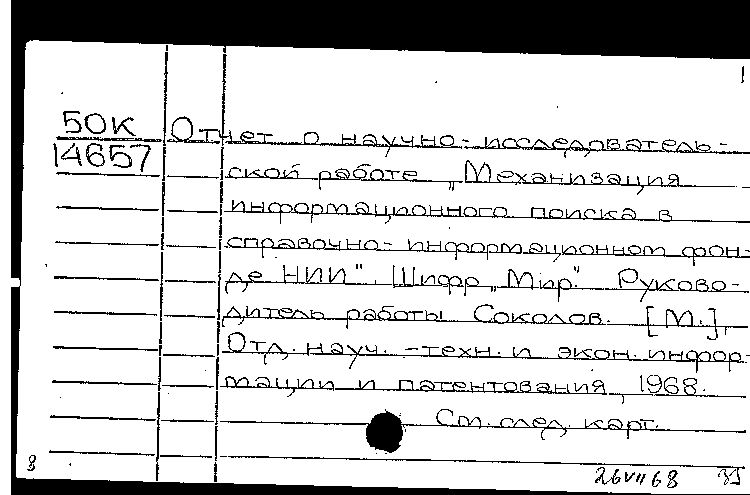 1
50К
14657
Отчет о научно-исследователь-
ской работе „Механизация
информационного поиска в
справочно-информационном фон-
де НИИ". Шифр „Мир". Руково-
дитель работы Соколов. [М.],
Отд. науч.-техн. и экон. инфор-
мации и патентования, 1968.
См. след. карт.
8
26VII68